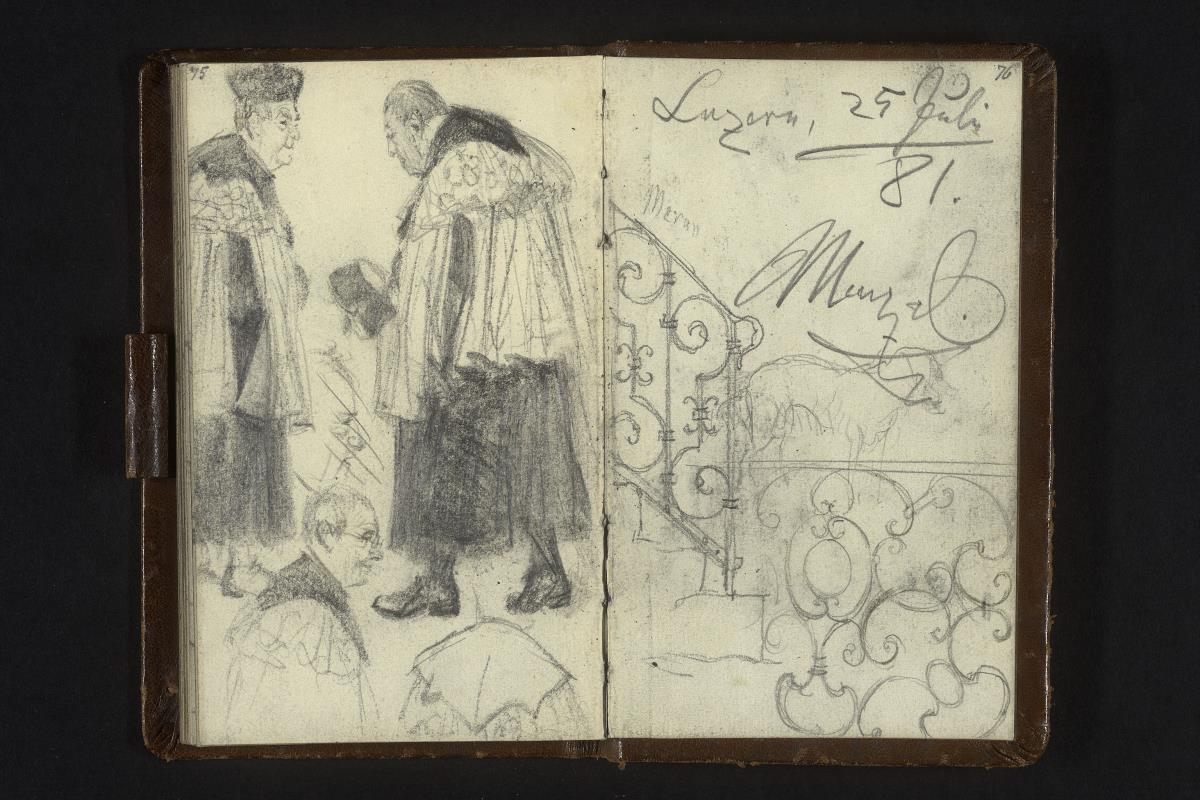 75
76
Luzern, 25 Juli
81.
Meran
Menzel.